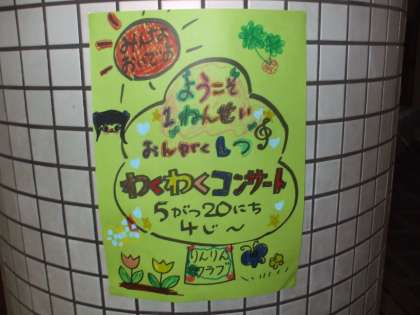 みんな
おいでよ
ようこそ
1ねんせい
おんがくしつ
わくわくコンサート
5がつ20にち
4じ～
りんりん
クラブ